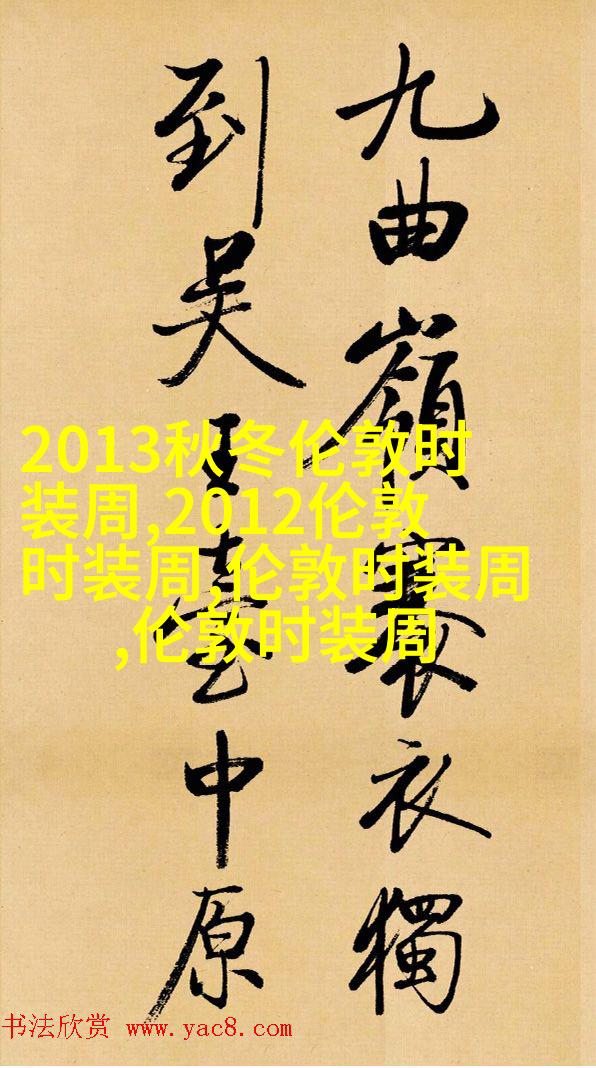 九曲嶺褰衣獨
到吴王臺中原
2013秋冬伦敦时
装周,2012伦敦
时装周,伦敦时装周
,伦敦时装周
书法欣赏 www.yac8.com